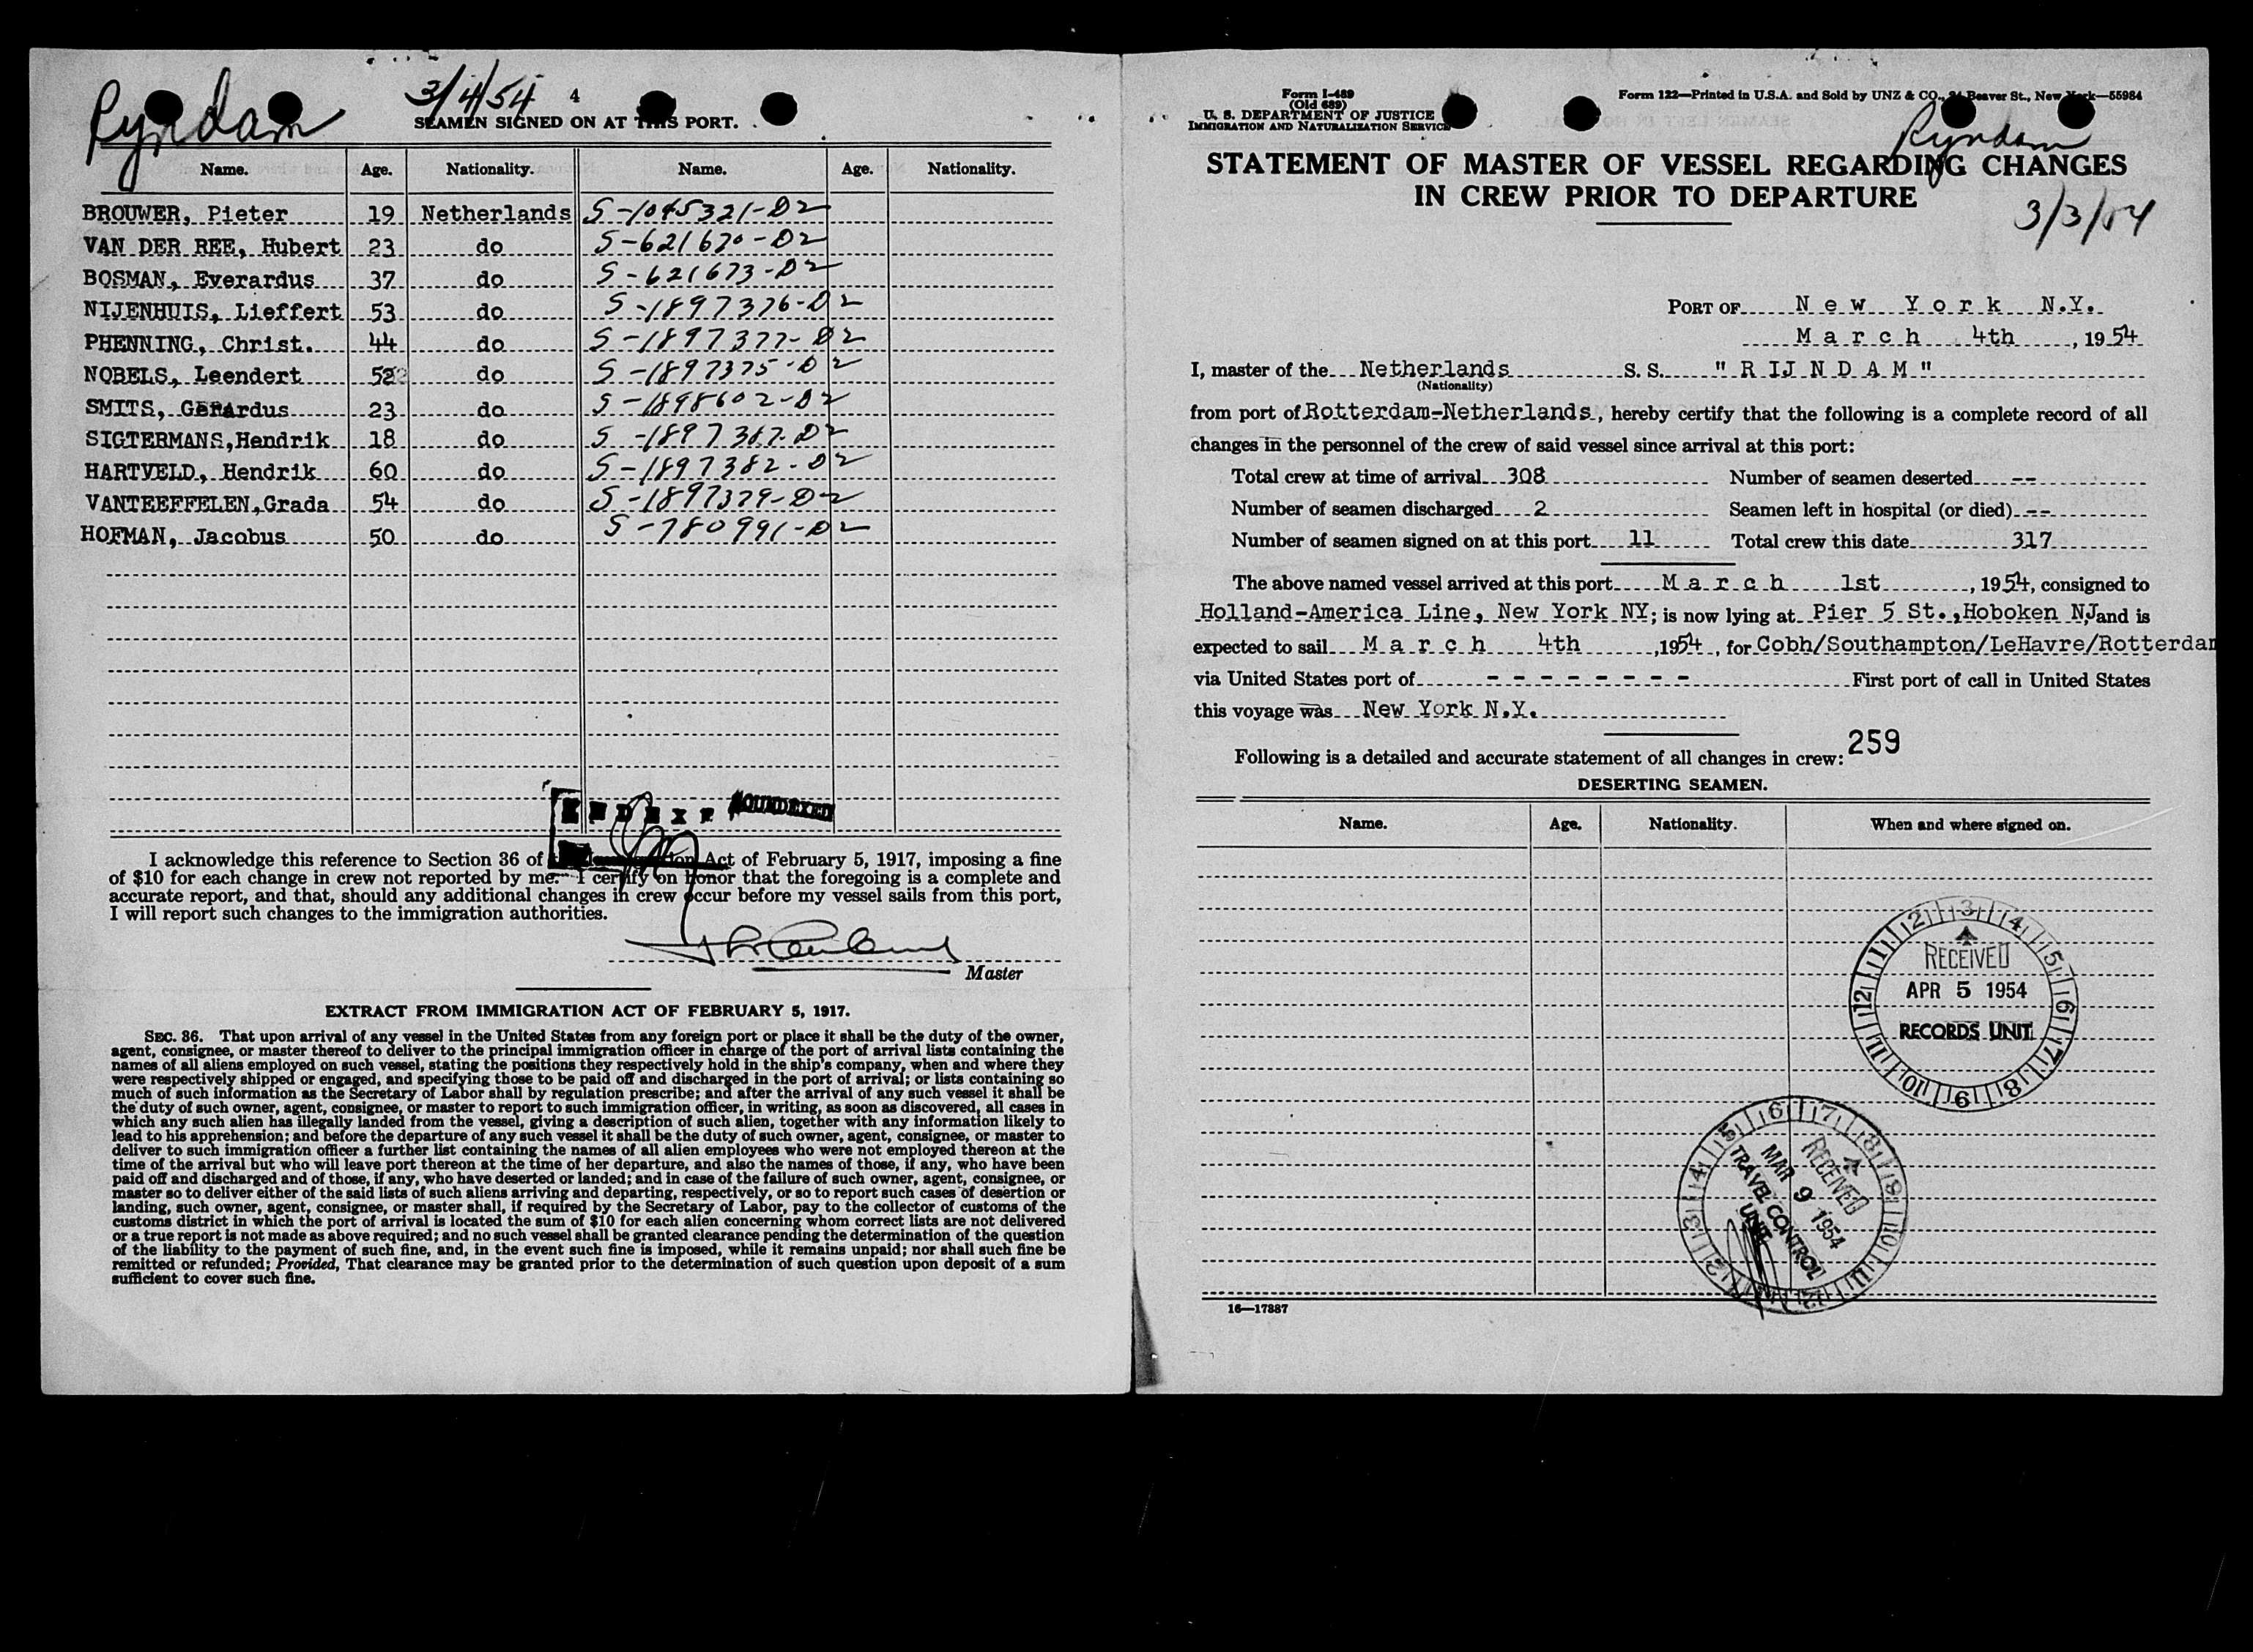 Ryndam
3/4/54
4
SEAMEN SIGNED ON AT THIS PORT.
Name. Age. Nationality. Name. Age. Nationality.
BROUWER, Pieter 19 Netherlands S-1045321-D2
VAN DER REE, Hubert 23 do S-621670-D2
BOSMAN, Everardus 37 do S-621673-D2
NIJENHUIS, Lieffert 53 do S-1897376-D2
PHENNING, Christ. 44 do S-1897377-D2
NOBELS, Leendert 52 do S-1897375-D2
SMITS, Gerardus 23 do S-1898602-D2
SIGTERMANS, Hendrik 18 do S-1897367-D2
HARTVELD, Hendrik 60 do S-1897382-D2
VANTEEFFELEN, Grada 54 do S-1897379-D2
HOFMAN, Jacobus 50 do S-780991-D2
SOUNDEXED
I acknowledge this reference to Section 36 of Act of February 5, 1917, imposing a fine
of $10 for each change in crew not reported by me. I certify on honor that the foregoing is a complete and
accurate report, and that, should any additional changes in crew occur before my vessel sails from this port,
I will report such changes to the immigration authorities.
Master
EXTRACT FROM IMMIGRATION ACT OF FEBRUARY 5, 1917.
SEC. 36. That upon arrival of any vessel in the United States from any foreign port or place it shall be the duty of the owner,
agent, consignee, or master thereof to deliver to the principal immigration officer in charge of the port of arrival lists containing the
names of all aliens employed on such vessel, stating the positions they respectively hold in the ship's company, when and where they
were respectively shipped or engaged, and specifying those to be paid off and discharged in the port of arrival; or lists containing so
much of such information as the Secretary of Labor shall by regulation prescribe; and after the arrival of any such vessel it shall be
the duty of such owner, agent, consignee, or master to report to such immigration officer, in writing, as soon as discovered, all cases in
which any such alien has illegally landed from the vessel, giving a description of such alien, together with any information likely to
lead to his apprehension; and before the departure of any such vessel it shall be the duty of such owner, agent, consignee, or master to
deliver to such immigration officer a further list containing the names of all alien employees who were not employed thereon at the
time of the arrival but who will leave port thereon at the time of her departure, and also the names of those, if any, who have been
paid off and discharged and of those, if any, who have deserted or landed; and in case of the failure of such owner, agent, consignee, or
master so to deliver either of the said lists of such aliens arriving and departing, respectively, or so to report such cases of desertion or
landing, such owner, agent, consignee, or master shall, if required by the Secretary of Labor, pay to the collector of customs of the
customs district in which the port of arrival is located the sum of $10 for each alien concerning whom correct lists are not delivered
or a true report is not made as above required; and no such vessel shall be granted clearance pending the determination of the question
of the liability to the payment of such fine, and, in the event such fine is imposed, while it remains unpaid; nor shall such fine be
remitted or refunded; Provided, That clearance may be granted prior to the determination of such question upon deposit of a sum
sufficient to cover such fine.
Form I-489
(Old 689)
U. S. DEPARTMENT OF JUSTICE
IMMIGRATION AND NATURALIZATION SERVICE
Form 122—Printed in U.S.A. and Sold by UNZ & CO., 24 Beaver St., New York—55984
Ryndam
STATEMENT OF MASTER OF VESSEL REGARDING CHANGES
IN CREW PRIOR TO DEPARTURE
3/3/54
PORT OF New York N.Y.
March 4th, 1954
I, master of the Netherlands S. S. "RIJNDAM"
(Nationality)
from port of Rotterdam-Netherlands, hereby certify that the following is a complete record of all
changes in the personnel of the crew of said vessel since arrival at this port:
Total crew at time of arrival 308 Number of seamen deserted --
Number of seamen discharged 2 Seamen left in hospital (or died) --
Number of seamen signed on at this port 11 Total crew this date 317
The above named vessel arrived at this port March 1st, 1954, consigned to
Holland-America Line, New York NY; is now lying at Pier 5 St., Hoboken NJ and is
expected to sail March 4th, 1954, for Cobh/Southampton/LeHavre/Rotterdam
via United States port of - - - - - - - - First port of call in United States
this voyage was New York N.Y.
259
Following is a detailed and accurate statement of all changes in crew:
DESERTING SEAMEN.
Name. Age. Nationality. When and where signed on.
RECEIVED
APR 5 1954
RECORDS UNIT
RECEIVED
MAR 9 1954
TRAVEL CONTROL
UNIT
16—17887